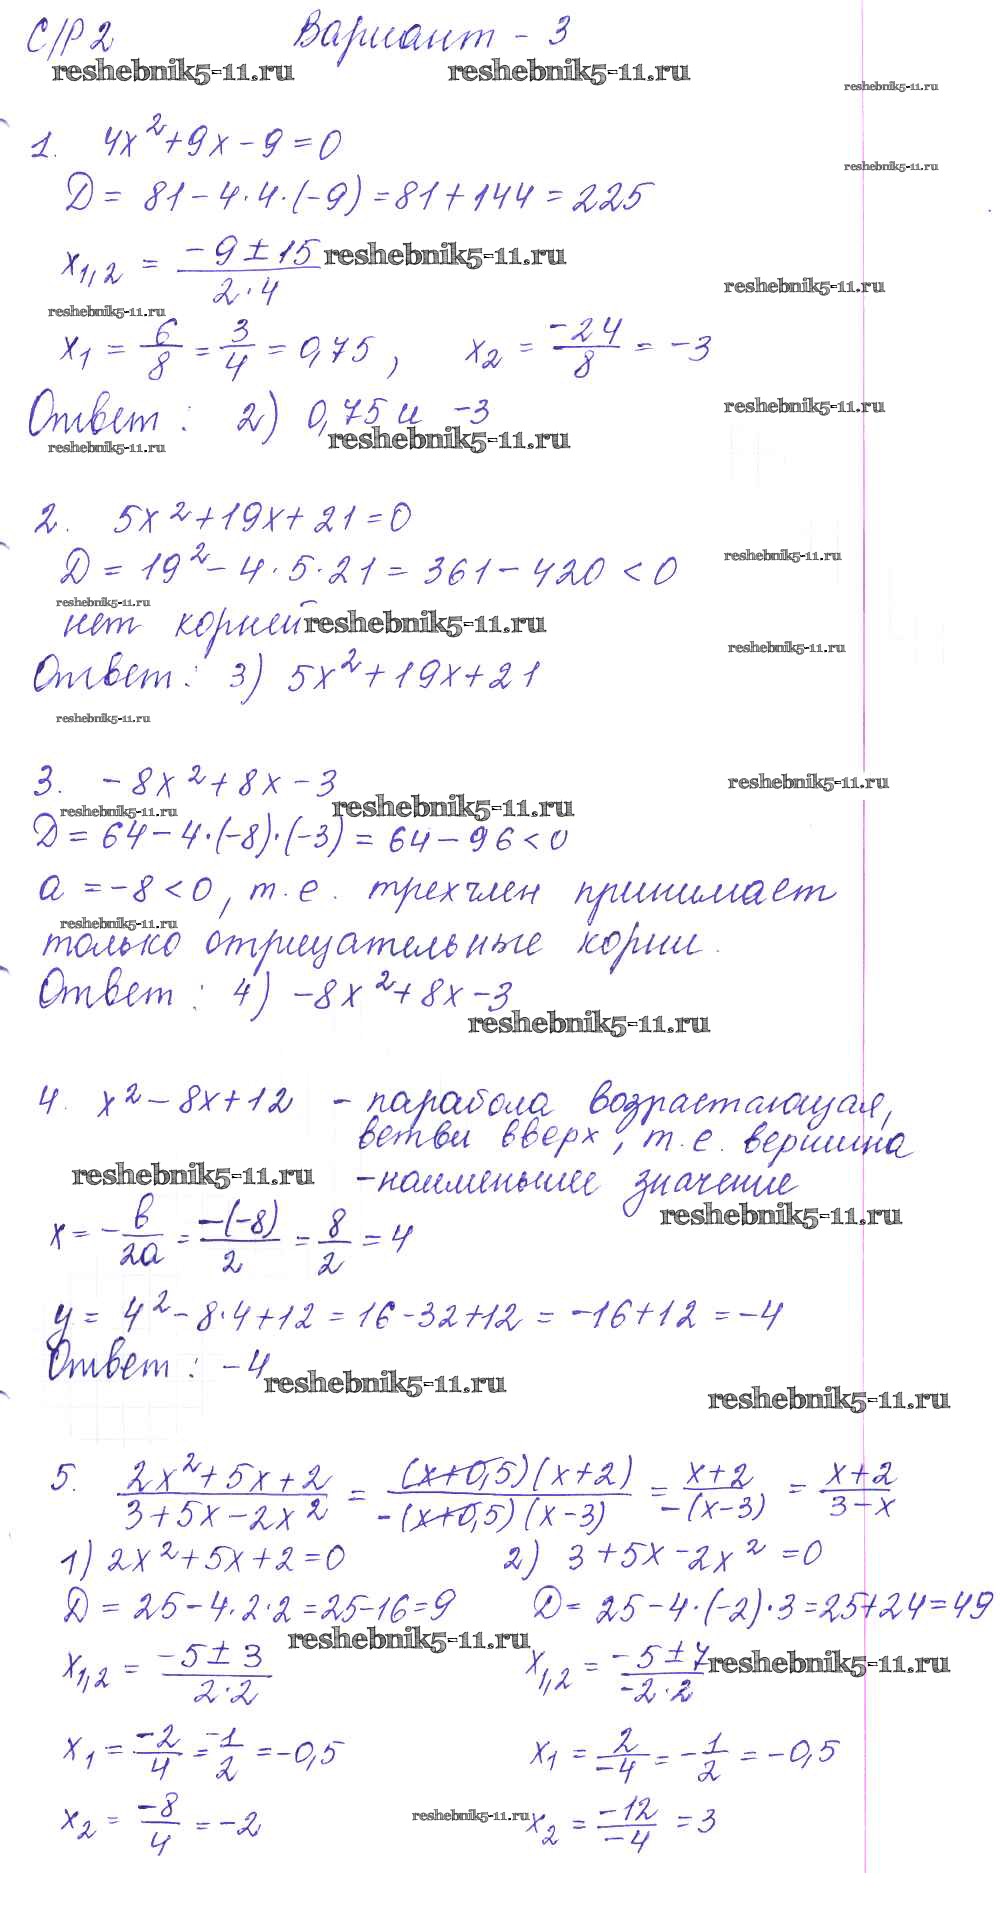 С/Р 2 Вариант - 3
reshebnik5-11.ru reshebnik5-11.ru
reshebnik5-11.ru
1. 4x² + 9x - 9 = 0
reshebnik5-11.ru
D = 81 - 4 · 4 · (-9) = 81 + 144 = 225
x₁,₂ = (-9 ± 15)/(2 · 4) reshebnik5-11.ru
reshebnik5-11.ru
reshebnik5-11.ru
x₁ = 6/8 = 3/4 = 0,75 , x₂ = -24/8 = -3
Ответ : 2) 0,75 и -3 reshebnik5-11.ru
reshebnik5-11.ru reshebnik5-11.ru
2. 5x² + 19x + 21 = 0
D = 19² - 4 · 5 · 21 = 361 - 420 < 0 reshebnik5-11.ru
reshebnik5-11.ru
нет корней reshebnik5-11.ru
reshebnik5-11.ru
Ответ : 3) 5x² + 19x + 21
reshebnik5-11.ru
3. -8x² + 8x - 3 reshebnik5-11.ru
reshebnik5-11.ru reshebnik5-11.ru
D = 64 - 4 · (-8) · (-3) = 64 - 96 < 0
a = -8 < 0 , т. е. трехчлен принимает
reshebnik5-11.ru
только отрицательные корни .
Ответ : 4) -8x² + 8x - 3
reshebnik5-11.ru
4. x² - 8x + 12 - парабола возрастающая,
ветви вверх, т. е. вершина
reshebnik5-11.ru - наименьшее значение
reshebnik5-11.ru
x = - в/2a = -(-8)/2 = 8/2 = 4
y = 4² - 8 · 4 + 12 = 16 - 32 + 12 = -16 + 12 = -4
Ответ : -4 reshebnik5-11.ru
reshebnik5-11.ru
5. (2x² + 5x + 2)/(3 + 5x - 2x²) = (x+0,5)(x+2)/-(x+0,5)(x-3) = (x+2)/-(x-3) = (x+2)/(3-x)
1) 2x² + 5x + 2 = 0 2) 3 + 5x - 2x² = 0
D = 25 - 4 · 2 · 2 = 25 - 16 = 9 D = 25 - 4 · (-2) · 3 = 25 + 24 = 49
reshebnik5-11.ru
x₁,₂ = (-5 ± 3)/(2 · 2) x₁,₂ = (-5 ± 7)/(-2 · 2) reshebnik5-11.ru
x₁ = -2/4 = -1/2 = -0,5 x₁ = 2/-4 = -1/2 = -0,5
x₂ = -8/4 = -2 reshebnik5-11.ru x₂ = -12/-4 = 3